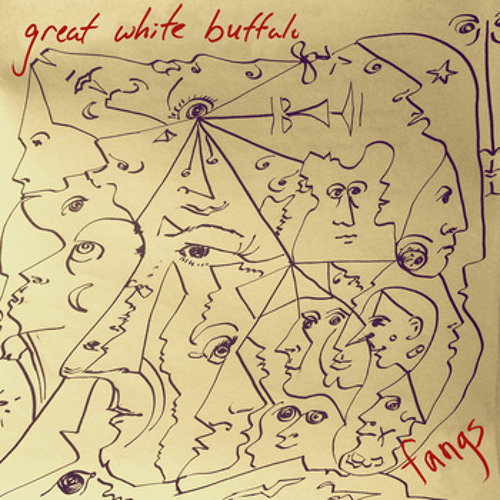 great white buffalo
fangs